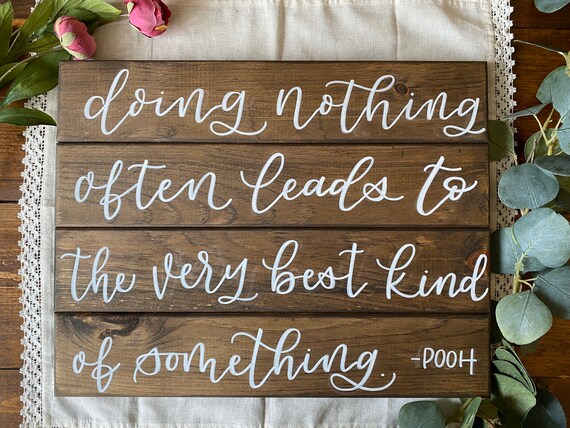 doing nothing
often leads to
the very best kind
of something. -POOH